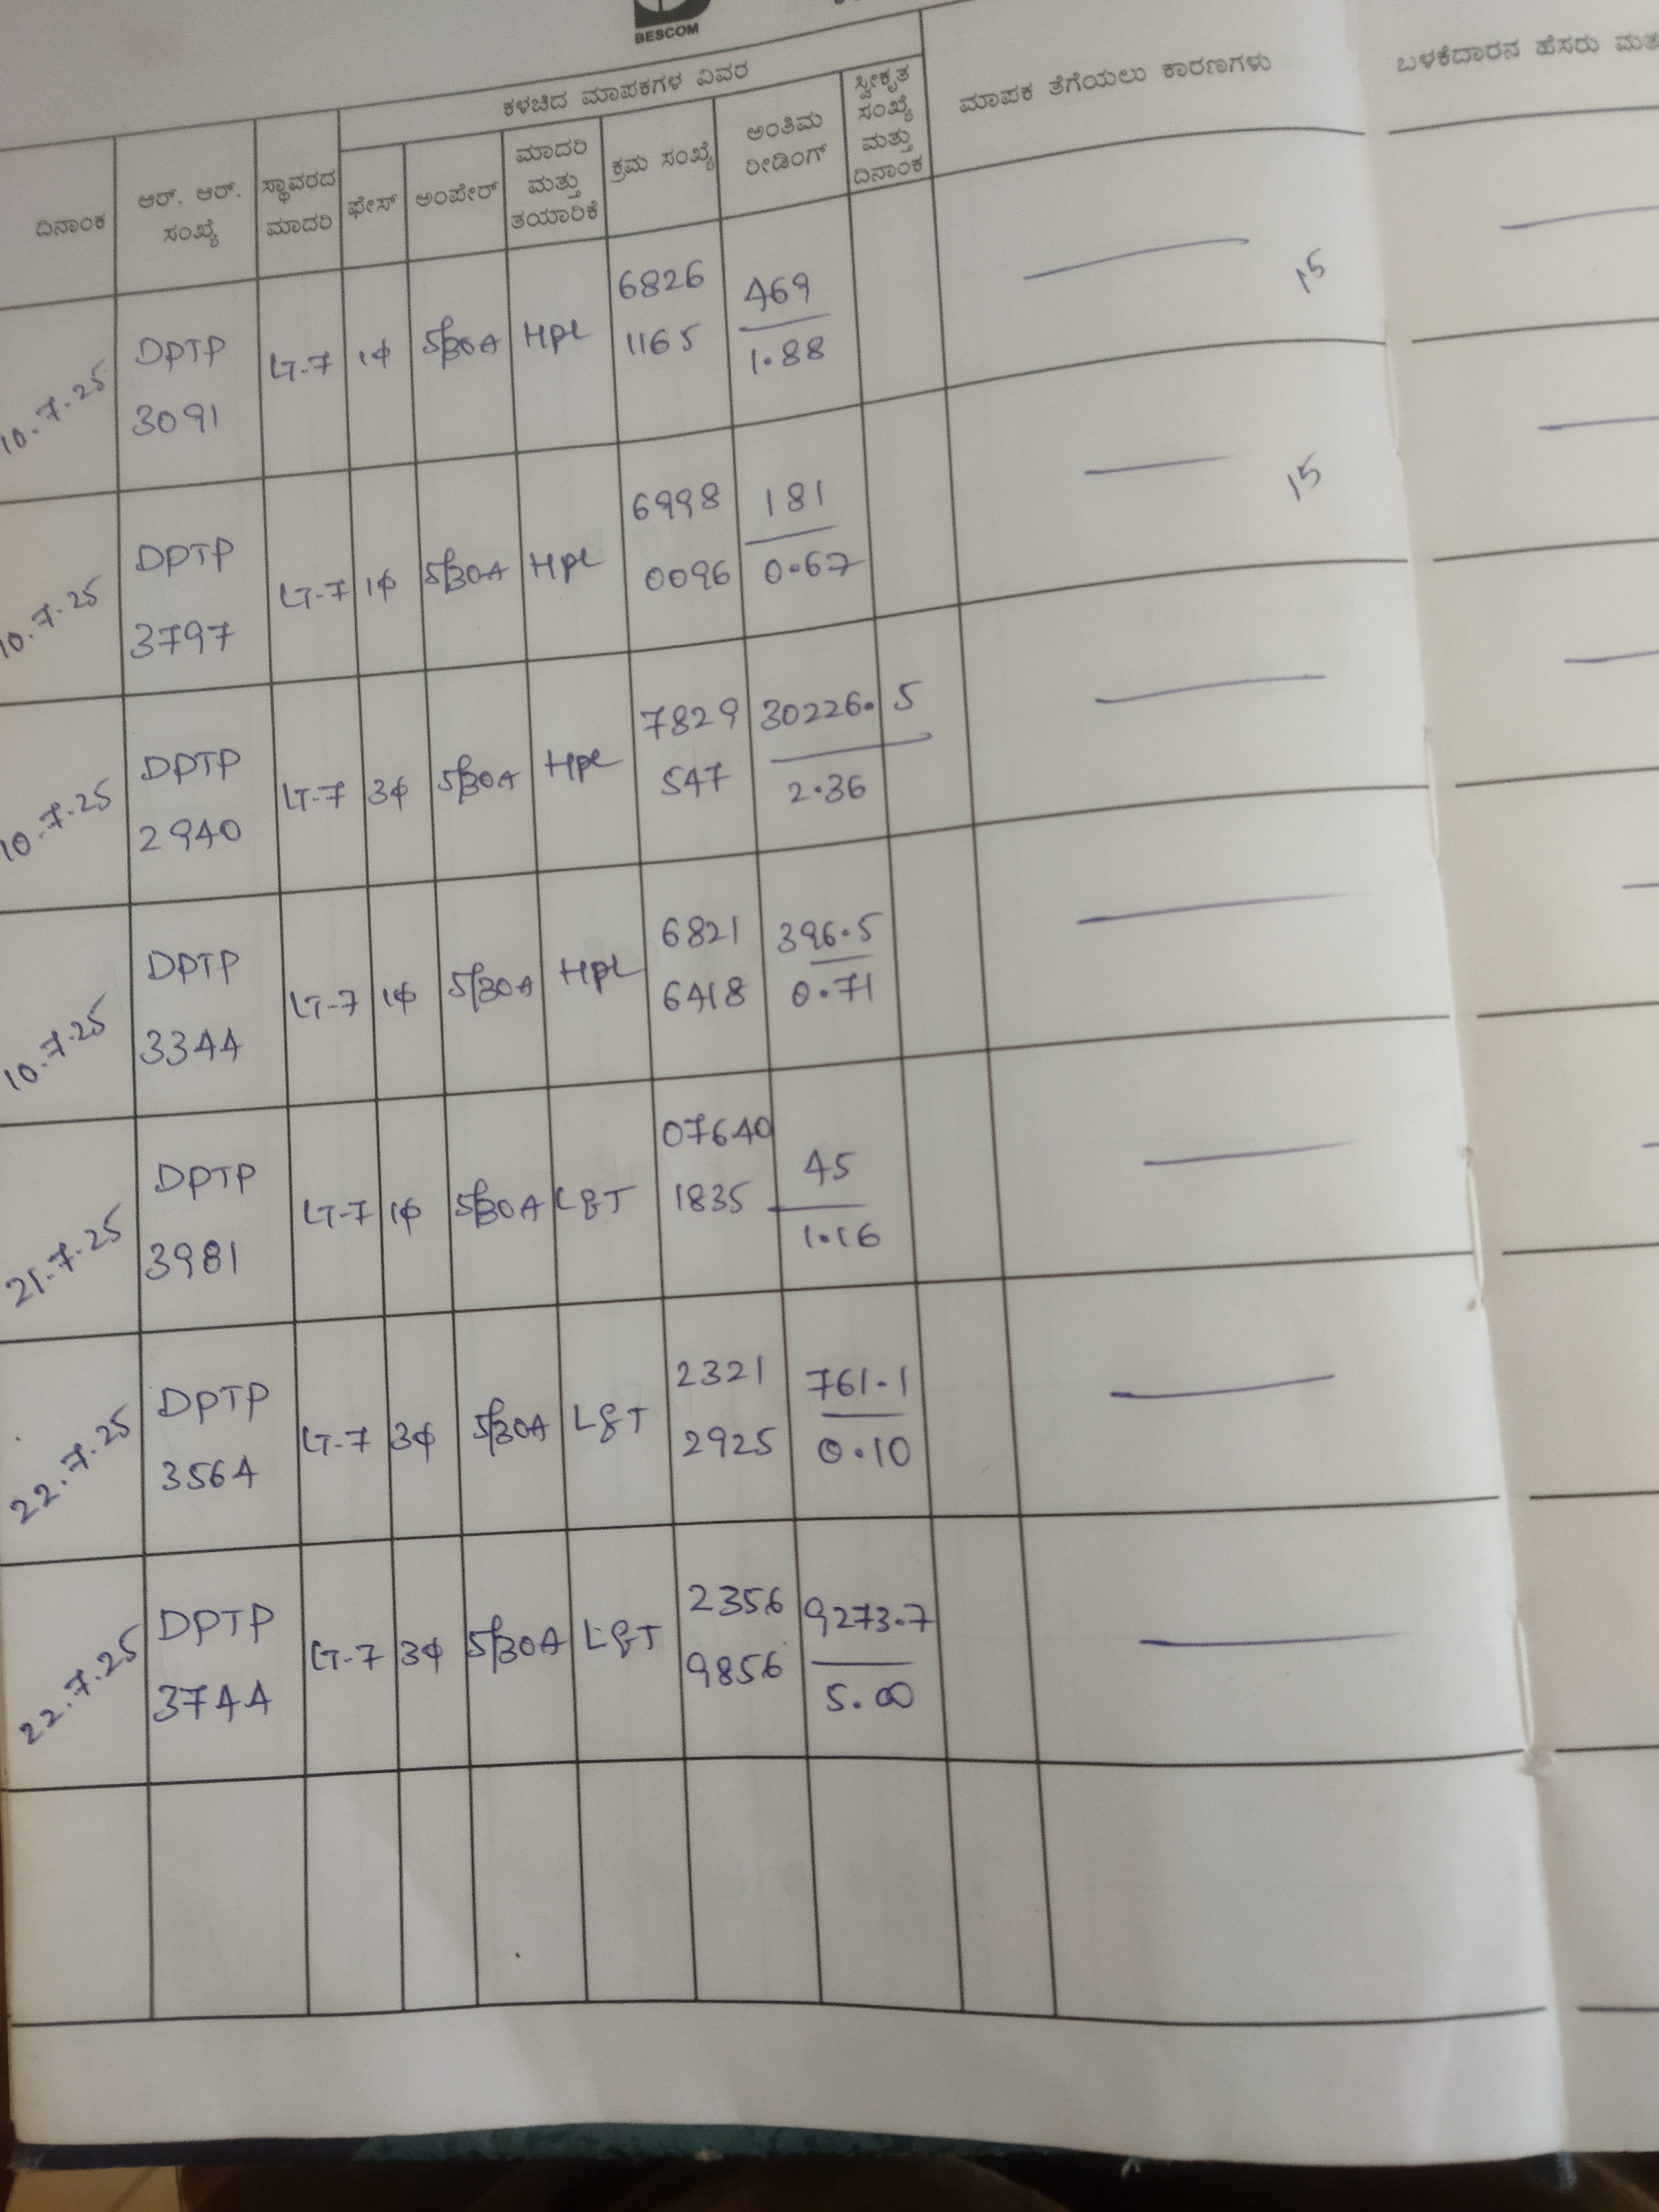 BESCOM
ಕಳಚಿದ ಮಾಪಕಗಳ ವಿವರ
ದಿನಾಂಕ
ಆರ್. ಆರ್.
ಸಂಖ್ಯೆ
ಸ್ಥಾವರದ
ಮಾದರಿ
ಫೇಸ್
ಅಂಪೇರ್
ಮಾದರಿ
ಮತ್ತು
ತಯಾರಿಕೆ
ಕ್ರಮ ಸಂಖ್ಯೆ
ಅಂತಿಮ
ರೀಡಿಂಗ್
ಸ್ವೀಕೃತ
ಸಂಖ್ಯೆ
ಮತ್ತು
ದಿನಾಂಕ
ಮಾಪಕ ತೆಗೆಯಲು ಕಾರಣಗಳು
ಬಳಕೆದಾರನ ಹೆಸರು
10.7.25 DPTP 3091 LT-7 1ϕ 5/30A HPL 6826 1165 469 1.88 15
10.7.25 DPTP 3797 LT-7 1ϕ 5/30A HPL 6998 0096 181 0.67 15
10.7.25 DPTP 2940 LT-7 3ϕ 5/30A HPL 7829 547 30226.5 2.36
10.7.25 DPTP 3344 LT-7 1ϕ 5/30A HPL 6821 6418 396.5 0.71
21.7.25 DPTP 3981 LT-7 1ϕ 5/30A L&T 07640 1835 45 1.16
22.7.25 DPTP 3564 LT-7 3ϕ 5/30A L&T 2321 2925 761.1 0.10
22.7.25 DPTP 3744 LT-7 3ϕ 5/30A L&T 2356 9856 9273.7 5.00